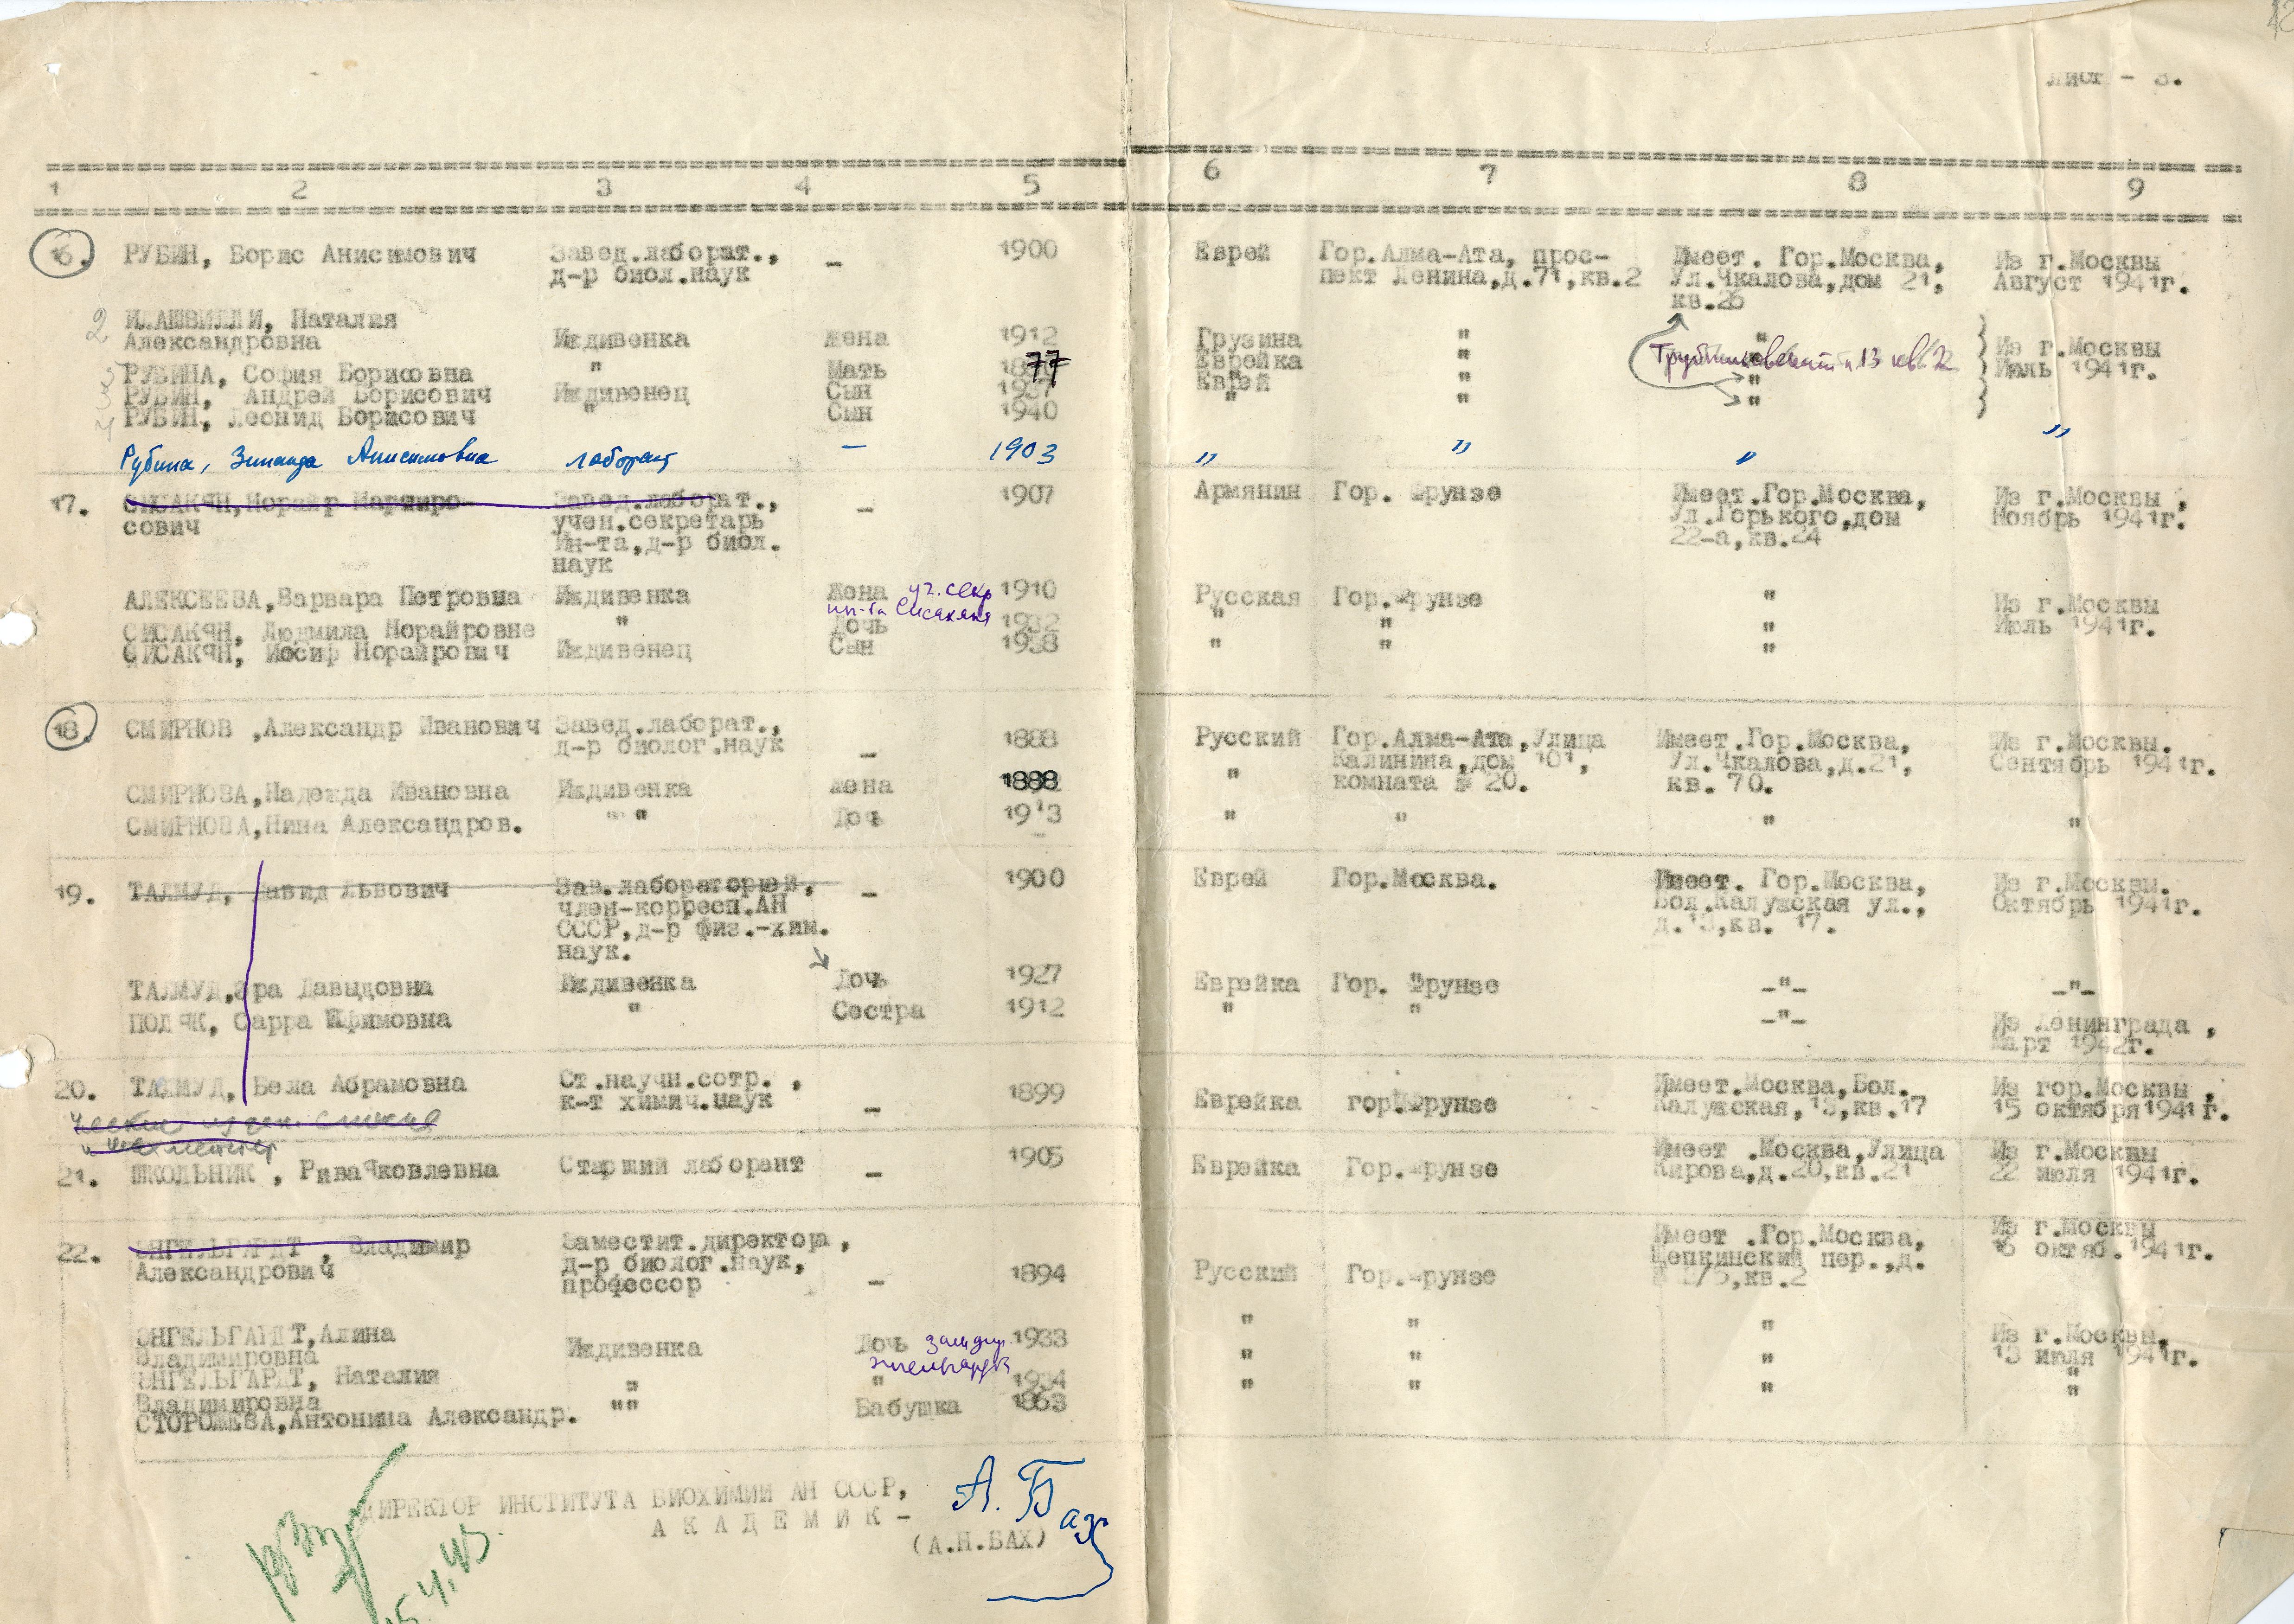 Лист - 3.
1 2 3 4 5 6 7 8 9
16. РУБИН, Борис Анисимович Завед.лаборат., – 1900 Еврей Гор.Алма-Ата, прос- Имеет. Гор.Москва, Из г.Москвы
д-р биол.наук пект Ленина,д.71,кв.2 Ул.Чкалова,дом 21, Август 1941г.
кв.26
2 ИЛАШВИЛЛИ, Наталия
Александровна Иждивенка Жена 1912 Грузина " " Из г.Москвы
3 РУБИНА, София Борисовна " Мать 1877 Еврейка " 13 кв. 22 Июль 1941г.
РУБИН, Андрей Борисович Иждивенец Сын 1937 Еврей "
4 РУБИН, Леонид Борисович " Сын 1940 " " "
Рубина, Зинаида Анисимовна лаборант – 1903 " " " "
17. СИСАКЯН,Норайр Мартиро- Завед.лаборат., – 1907 Армянин Гор. Фрунзе Имеет.Гор.Москва, Из г.Москвы,
сович учен.секретарь Ул.Горького,дом Ноябрь 1941г.
Ин-та,д-р биол. 22-а,кв.24
наук
АЛЕКСЕЕВА,Варвара Петровна Иждивенка Жена уч. секр. 1910 Русская Гор.Фрунзе " Из г.Москвы
ин-та Сисакяна
СИСАКЯН, Людмила Норайровне " Дочь 1932 " " " Июль 1941г.
СИСАКЯН, Иосиф Норайрович Иждивенец Сын 1938 " " "
18. СМИРНОВ ,Александр Иванович Завед.лаборат., 1888 Русский Гор.Алма-Ата,Улица Имеет.Гор.Москва, Из г.Москвы.
д-р биолог.наук – Калинина,дом 101, Ул.Чкалова,д.21, Сентябрь 1941г.
СМИРНОВА,Надежда Ивановна Иждивенка Жена 1888 " комната № 20. кв. 70.
СМИРНОВА,Нина Александров. " " Доч 1913 " " " "
19. ТАЛМУД, Давид Львович Зав.лабораторией, – 1900 Еврей Гор.Москва. Имеет. Гор.Москва, Из г.Москвы.
член-корресп.АН Бол.Калужская ул., Октябрь 1941г.
СССР,д-р физ.-хим. д.13,кв. 17.
наук.
ТАЛМУД,Эра Давыдовна Иждивенка Дочь 1927 Еврейка Гор. Фрунзе –"– –"–
ПОЛЯК, Сарра Ефимовна " Сестра 1912 " " –"– Из Ленинграда,
Март 1942г.
20. ТАЛМУД, Бема Абрамовна Ст.научн.сотр., – 1899 Еврейка гор.Фрунзе Имеет.Москва,Бол. Из гор.Москвы,
к-т химич.наук Калужская,13,кв.17 15 октября1941г.
21. ШКОЛЬНИК , Рива Яковлевна Старший лаборант – 1905 Еврейка Гор.Фрунзе Имеет .Москва,Улица Из г.Москвы
Кирова,д.20,кв.21 22 июля 1941г.
22. ЭНГЕЛЬГАРДТ , Владимир Заместит.директора, Имеет .Гор.Москва, Из г.Москвы
Александрович д-р биолог.наук, – 1894 Русский Гор.Фрунзе Щепкинский пер.,д. 16 октяб.1941г.
профессор кв.2
ЭНГЕЛЬГАРДТ,Алина Иждивенка Дочь зам дир. 1933 " " " Из г.Москвы,
Владимировна Энгельгардт 13 июля 1941г.
ЭНГЕЛЬГАРДТ, Наталия " " 1934 " " " "
Владимировна
СТОРОЖЕВА,Антонина Александр. "" Бабушка 1863 " " " "
ДИРЕКТОР ИНСТИТУТА БИОХИМИИ АН СССР,
АКАДЕМИК – А. Бах
(А.Н.БАХ)